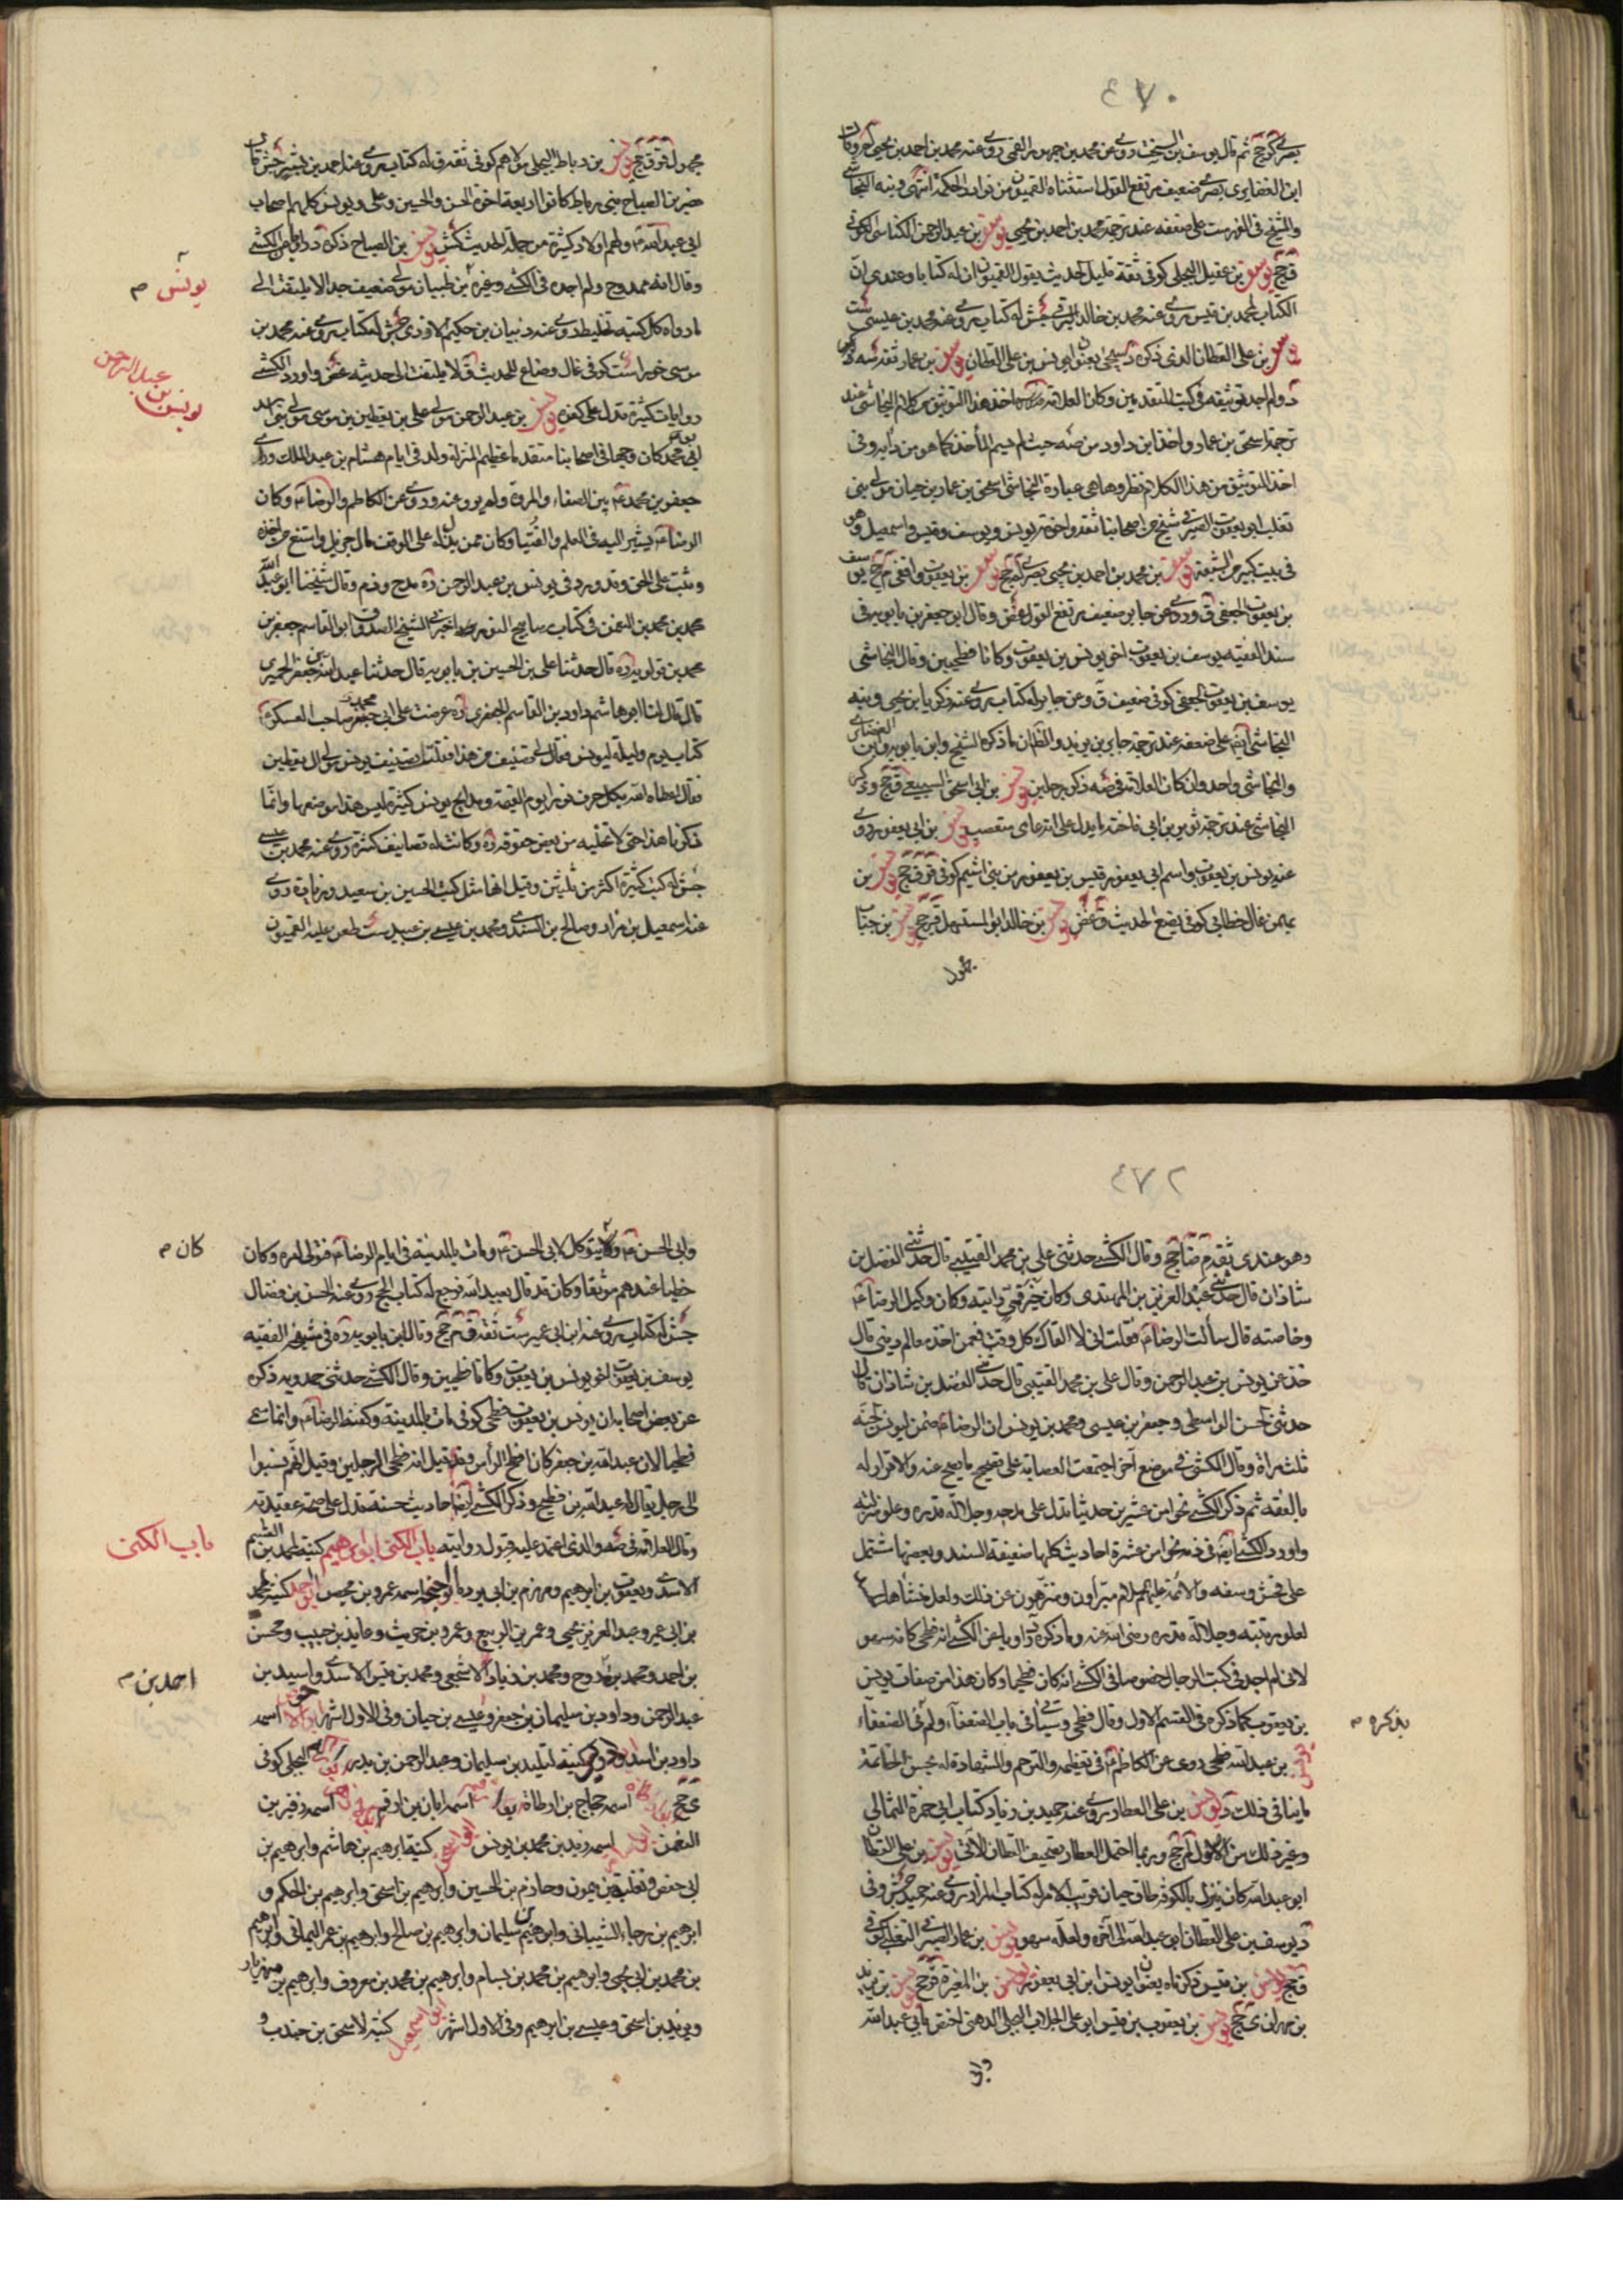 ٤٧٠
بصري كر جخ ثم قال يوسف بن السخت روى عن محمد بن جمهور القمي روى عنه محمد بن احمد بن يحيى كر وقال
ابن الغضايري بصري ضعيف مرتفع القول استثناه القميون من نوادر الحكمة انتهى ونبه النجاشي
والشيخ في الفهرست على ضعفه عند ترجمة محمد بن احمد بن يحيى يوسف بن عبد الرحمن الكناسي الكوفي
ق جخ يوسف بن عقيل البجلي كوفي ثقة قليل الحديث يقول القميون ان له كتابا وعندي ان
الكتاب لمحمد بن قيس روى عنه محمد بن خالد البرقي جش له كتاب روى عنه محمد بن عيسى ست
بن علي القطان الذي ذكره د سيجئ بعنوان يونس بن علي القطان يوسف بن عمار ثقة
د ولم اجد توثيقه في كتب المتقدمين وكان العلامة اخذ هذا التوثيق من كلام النجاشي عند
ترجمة اسحق بن عمار واخذ ابن داود من صه حيث لم يسم المأخذ كما هو من دابه وفي
اخذ التوثيق من هذا الكلام نظر وها هي عبارة النجاشي اسحق بن عمار بن حيان مولى بني
تغلب ابو يعقوب الصيرفي شيخ من اصحابنا ثقة واخوته يونس ويوسف وقيس واسمعيل وهو
في بيت كبير من الشيعة يوسف بن محمد بن احمد بن يحيى بصري لم جخ يوسف بن يعقوب واقفي م جخ يوسف
بن يعقوب الجعفي ق روى عن جابر ضعيف مرتفع القول غض وقال ابن جعفر بن بابويه في
سند الفقيه يوسف بن يعقوب اخي يونس بن يعقوب وكانا فطحيين وقال النجاشي
يوسف بن يعقوب الجعفي كوفي ضعيف ق وعن جابر له كتاب روى عنه زكريا بن يحيى ونبه
النجاشي ايضا على ضعفه عند ترجمة جابر بن يزيد والظان ما ذكره الشيخ وابن بابويه وابن الغضائري
والنجاشي واحد وان كان العلامة في صه ذكر رجلين يونس بن ابي اسحق السبيعي ق جخ وذكر
النجاشي عند ترجمة ثوير بن ابي فاختة ما يدل على انه عامي متعصب يونس بن ابي يعفور روى
عنه يونس بن يعقوب واسم ابي يعفور قيس بن يعفور من بني اشيم كوفي ق جخ يونس بن
بهمن غال خطابي كوفي يضع الحديث ق غض يونس بن خالد ابو المستهل ق جخ يونس بن خباب
مجهول
مجهول ق جخ يونس بن رباط البجلي مولاهم كوفي ثقة ق له كتاب روى عنه احمد بن بشير جش قال
نصر بن الصباح بني رباط كانوا اربعة اخوة الحسن والحسين وعلي ويونس كلهم اصحاب
ابي عبد الله ع ولهم اولاد كثيرة من حملة الحديث كش يونس بن الصباح ذكره د من الكشي
وقال انه ممدوح ولم اجده في الكشي وغيره بن ظبيان مولى ضعيف جدا لا يلتفت الى
ما رواه كل كتبه تخليط روى عنه دبيان بن حكيم الاودي جش له كتاب روى عنه محمد بن
موسى خوراء ست كوفي غال وضاع للحديث ق لا يلتفت الى حديثه غض واورد الكشي
روايات كثيرة تدل على كفره يونس بن عبد الرحمن مولى علي بن يقطين بن موسى مولى بني اسد
ابو محمد كان وجها في اصحابنا متقدما عظيم المنزلة ولد في ايام هشام بن عبد الملك وراى
جعفر بن محمد ع بين الصفا والمروة ولم يرو عنه وروى عن الكاظم والرضا ع وكان
الرضا ع يشير اليه في العلم والفتيا وكان ممن بذل له على الوقف مال جزيل وامتنع من اخذه
وثبت على الحق وقد ورد في يونس بن عبد الرحمن ره مدح وذم وقال شيخنا ابو عبد الله
محمد بن محمد بن النعمن في كتاب مصابيح النور اخبرني الشيخ الصدوق ابو القاسم جعفر بن
محمد بن قولويه ره قال حدثنا علي بن الحسين بن بابويه قال حدثنا عبد الله بن جعفر الحميري
قال قال لنا ابو هاشم داود بن القاسم الجعفري ره عرضت على ابي محمد صاحب العسكر ع
كتاب يوم وليلة ليونس فقال لي تصنيف من هذا فقلت تصنيف يونس مولى آل يقطين
فقال اعطاه الله بكل حرف نورا يوم القيمة ومدايح يونس كثيرة ليس هذا موضعها وانما
ذكرنا هذا حتى لا نخليه من بعض حقوقه ره وكانت له تصانيف كثيرة روى عنه محمد بن عيسى
جش له كتب كثيرة اكثر من ثلثين وقيل انها مثل كتب الحسين بن سعيد وزيادة روى
عنه اسمعيل بن مرار وصالح بن السندي ومحمد بن عيسى بن عبيد ست طعن عليه القميون
يونس م
يونس بن عبد الرحمن
٤٧٢
وهو عندي ثقة م ضا جخ وقال الكشي حدثني علي بن محمد القتيبي قال حدثني الفضل بن
شاذان قال حدثني عبد العزيز بن المهتدي وكان خير قمي رايته وكان وكيل الرضا ع
وخاصته قال سألت الرضا ع فقلت اني لا القاك كل وقت فعمن اخذ معالم ديني قال
خذ عن يونس بن عبد الرحمن وقال علي بن محمد القتيبي قال حدثني الفضل بن شاذان قال
حدثني الحسن الواسطي وجعفر بن عيسى ومحمد بن يونس ان الرضا ع ضمن ليونس الجنة
ثلث مرات وقال الكشي في موضع آخر اجتمعت العصابة على تصحيح ما يصح عنه والاقرار له
بالفقه ثم ذكر الكشي نحوا من عشرين حديثا تدل على مدحه وجلالة قدره وعلو منزلته
واورد الكشي ايضا في ذمه نحوا من عشرة احاديث كلها ضعيفة السند وبعضها تشتمل
على فحش وسفه والائمة عليهم السلام مبرأون ومنزهون عن ذلك ولعل منشأها
لعلو مرتبته وجلالة قدره رضي الله عنه وما ذكره د ناويا عن الكشي انه فطحي كانه سهو
لاني لم اجد في كتب الرجال خصوصا في الكشي انه كان فطحيا وكان هذا من صفات يونس
بن يعقوب كما ذكره في القسم الاول وقال فطحي وسيأتي في باب الضعفاء ولم في الضعفاء
بن عبد الله فطحي روى عن الكاظم ع في تعظيمه والترحم والشهادة له بحسن الخاتمة
ما ينافي ذلك د يونس بن علي العطار روى عنه حميد بن زياد كتاب ابي حمزة الثمالي
وغير ذلك من الاصول لم جخ وربما احتمل العطار تصحيف القطان الآتي يونس بن علي القطان
ابو عبد الله كان ينزل بالكوفة طاق حيان قريب الامر له كتاب المزار روى عنه حميد جش وفي
د يوسف بن علي القطان ابو عبد الله الى آخره ولعله سهو يونس بن عمار الصيرفي التغلبي كوفي
ق جخ يونس بن قيس ذكرناه بعنوان يونس ابن ابي يعفور يونس بن المغيرة ق جخ يونس بن يزيد
بن مهران ي جخ يونس بن يعقوب بن قيس ابو علي الجلاب البجلي الدهني اختص بابي عبد الله
وابي
يذكره م
وابي الحسن ع وكان يتوكل لابي الحسن ع ومات بالمدينة في ايام الرضا ع فتولى امره وكان
حظيا عندهم موثقا وكان قد قال بعبد الله فرجع له كتاب الحج روى عنه الحسن بن فضال
جش له كتاب روى عنه ابن ابي عمير ست ثقة ق م جخ وقال ابن بابويه ره في مشيخة الفقيه
يوسف بن يعقوب اخو يونس بن يعقوب وكانا فطحيين وقال الكشي حدثني حمدويه ذكره
عن بعض اصحابه ان يونس بن يعقوب فطحي كوفي مات بالمدينة وكفنه الرضا ع وانما سمي
فطحيا لان عبد الله بن جعفر كان افطح الرأس وقد قيل انه فطحي الرجلين وقيل انهم نسبوا
الى رجل يقال له عبد الله بن فطيح وذكر الكشي ايضا احاديث حسنة تدل على صحة عقيدته
وقال العلامة في صه والذي اعتمد عليه قبول روايته باب الكنى ابو ابرهيم كنية لمحمد بن القسم
الاسدي ويعقوب بن ابرهيم ومهزم بن ابي بردة اسمه عمرو بن محصن ابو احمد كنية لمحمد
بن ابي عمير وعبد العزيز بن يحيى وعمر بن الربيع وعمرو بن حريث وعايذ بن حبيب ومحسن
بن احمد ومحمد بن ومحمد بن زياد الاشجعي ومحمد بن قيس الاسدي واسيد بن
عبد الرحمن وداود بن سليمان بن جعفر وعيسى بن حيان وفي الاول اشهر ابو الاحوص اسمه
داود بن اسد كنية لتليد بن سليمان وعبد الرحمن بن بدر البجلي كوفي
ي جخ ابو ارطاة اسمه حجاج بن ارطاة اسمه ابان بن ارقم اسمه زفير بن
النعمن اسمه زيد بن محمد بن يونس ابو اسحق كنية ابرهيم بن هاشم وابرهيم بن
ابي حفص وثعلبة بن ميمون وحازم بن الحسين وابرهيم بن اسحق وابرهيم بن الحكم و
ابرهيم بن رجاء الشيباني وابرهيم بن سليمان وابرهيم بن صالح وابرهيم بن عمر اليماني وابرهيم
بن محمد بن ابي يحيى وابرهيم بن محمد بن بسام وابرهيم بن محمد بن معروف وابرهيم بن مهزيار
ويزيد بن اسحق وعيسى بن ابرهيم وفي الاول اشهر ابو اسمعيل كنية لاسحق بن جندب و
كان م
باب الكنى
احمد بن م